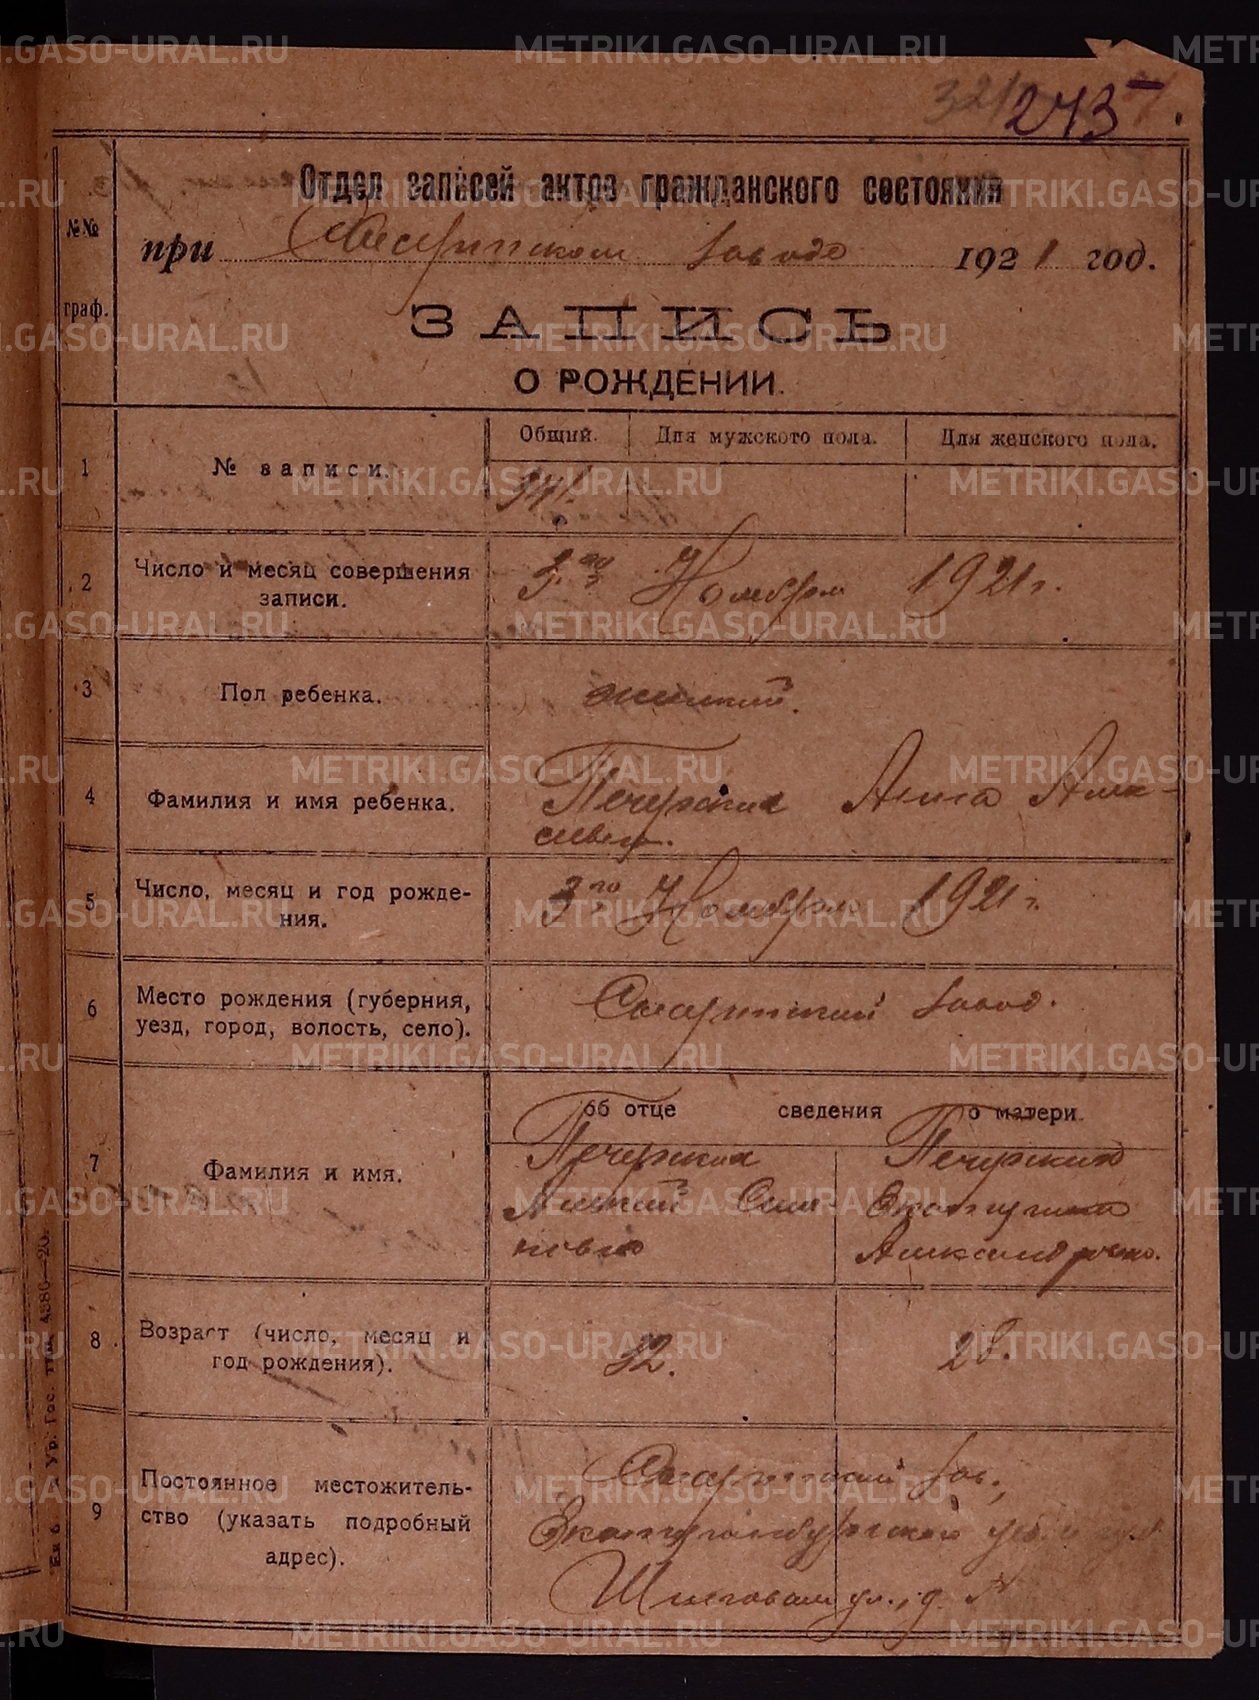 METRIKI.GASO-URAL.RU
273
Отдел записей актов гражданского состояния
при Сысертском заводе 1921 год.
№№
граф.
ЗАПИСЬ
О РОЖДЕНИИ.
Общий. Для мужского пола. Для женского пола.
1 № записи.
2 Число и месяц совершения
записи.
3го Ноября 1921 г.
3 Пол ребенка.
женский.
4 Фамилия и имя ребенка.
Печерских Анна Алек-
сеевн.
5 Число, месяц и год рожде-
ния.
3го Ноября 1921 г.
6 Место рождения (губерния,
уезд, город, волость, село).
Сысертский завод.
об отце сведения о матери.
7 Фамилия и имя.
Печерских
Алексей
Печерских
Екатерина
Александровна.
8 Возраст (число, месяц и
год рождения).
32. 28.
9 Постоянное местожитель-
ство (указать подробный
адрес).
Сысертский зав.,
Екатеринбургской губ. и у.
ул., д. №